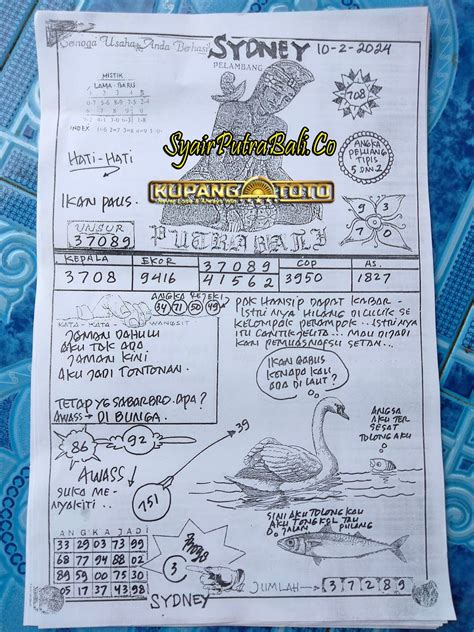 Semoga Usaha Anda Berhasil
SYDNEY 10-2-2024
PELAMBANG
MISTIK
LAMA - BARU
INDEX
HATI-HATI
IKAN PAUS.
708
ANGKA
PELUANG
TIPIS
5 DAN 2
SyairPutraBali.Co
KUPANG TOTO
9 3
7 0
UNSUR
37089
PUTRA BALI
KEPALA EKOR 37089 COP AS.
3708 9416 41562 3950 1827
ANGKA REJEKI
34 71 50 49
KATA - KATA WANGSIT
JAMAN DAHULU
AKU TAK ADA
JAMAN KINI
AKU JADI TONTONAN.
TETAP YG SABAR BRO. APA?
AWASS → DI BUNGA.
PAK HANSIP DAPAT KABAR -
ISTRI NYA HILANG DI CULIK SE
KELOMPOK PERAMPOK... ISTRI NYA
ITU CANTIK JELITA... MAU DI JADI
KAN PEMUAS NAFSU SETAN...
IKAN GABUS
KENAPA KAU
ADA DI LAUT?
ANGSA
AKU TER
SESAT
TOLONG AKU
86 92 39
AWASS
SUKA ME-
NYAKITI.
151
SINI AKU TOLONG KAU
AKU TONGKOL TAU
JALAN PULANG
ANGKA JADI
33 29 03 73 99
68 77 94 88 02
89 59 00 75 30
05 17 38 43 98
3
SYDNEY
JUMLAH 37289